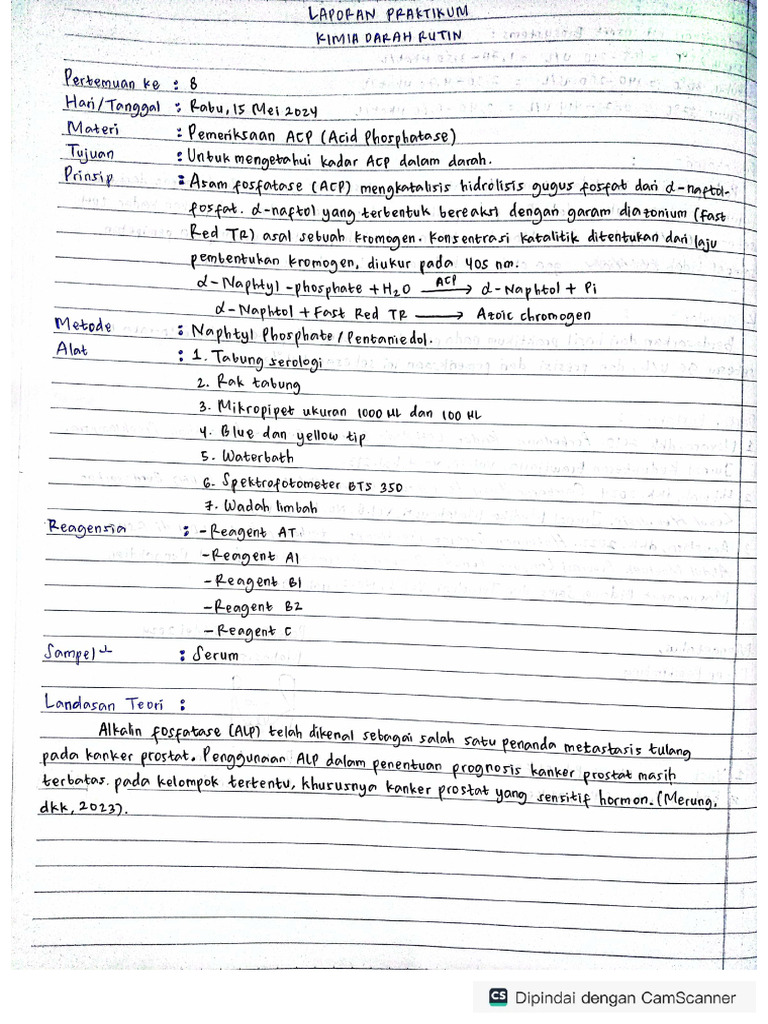 LAPORAN PRAKTIKUM
KIMIA DARAH RUTIN
Pertemuan ke : 8
Hari/Tanggal : Rabu, 15 Mei 2024
Materi : Pemeriksaan ACP (Acid Phosphatase)
Tujuan : Untuk mengetahui kadar ACP dalam darah.
Prinsip : Asam fosfatase (ACP) mengkatalisis hidrolisis gugus fosfat dari α-naftol-
fosfat. α-naftol yang terbentuk bereaksi dengan garam diazonium (fast
Red TR) asal sebuah kromogen. Konsentrasi katalitik ditentukan dari laju
pembentukan kromogen, diukur pada 405 nm.
α-Naphtyl-phosphate + H2O ACP → α-Naphtol + Pi
α-Naphtol + Fast Red TR → Atoic chromogen
Metode : Naphtyl Phosphate / Pentaniedol.
Alat : 1. Tabung serologi
2. Rak tabung
3. Mikropipet ukuran 1000 µL dan 100 µL
4. Blue dan yellow tip
5. Waterbath
6. Spektrofotometer BTS 350
7. Wadah limbah
Reagensia : - Reagent AT
- Reagent A1
- Reagent B1
- Reagent B2
- Reagent C
Sampel : Serum
Landasan Teori :
Alkalin fosfatase (ALP) telah dikenal sebagai salah satu penanda metastasis tulang
pada kanker prostat. Penggunaan ALP dalam penentuan prognosis kanker prostat masih
terbatas. pada kelompok tertentu, khususnya kanker prostat yang sensitif hormon. (Merung,
dkk, 2023).
CS Dipindai dengan CamScanner